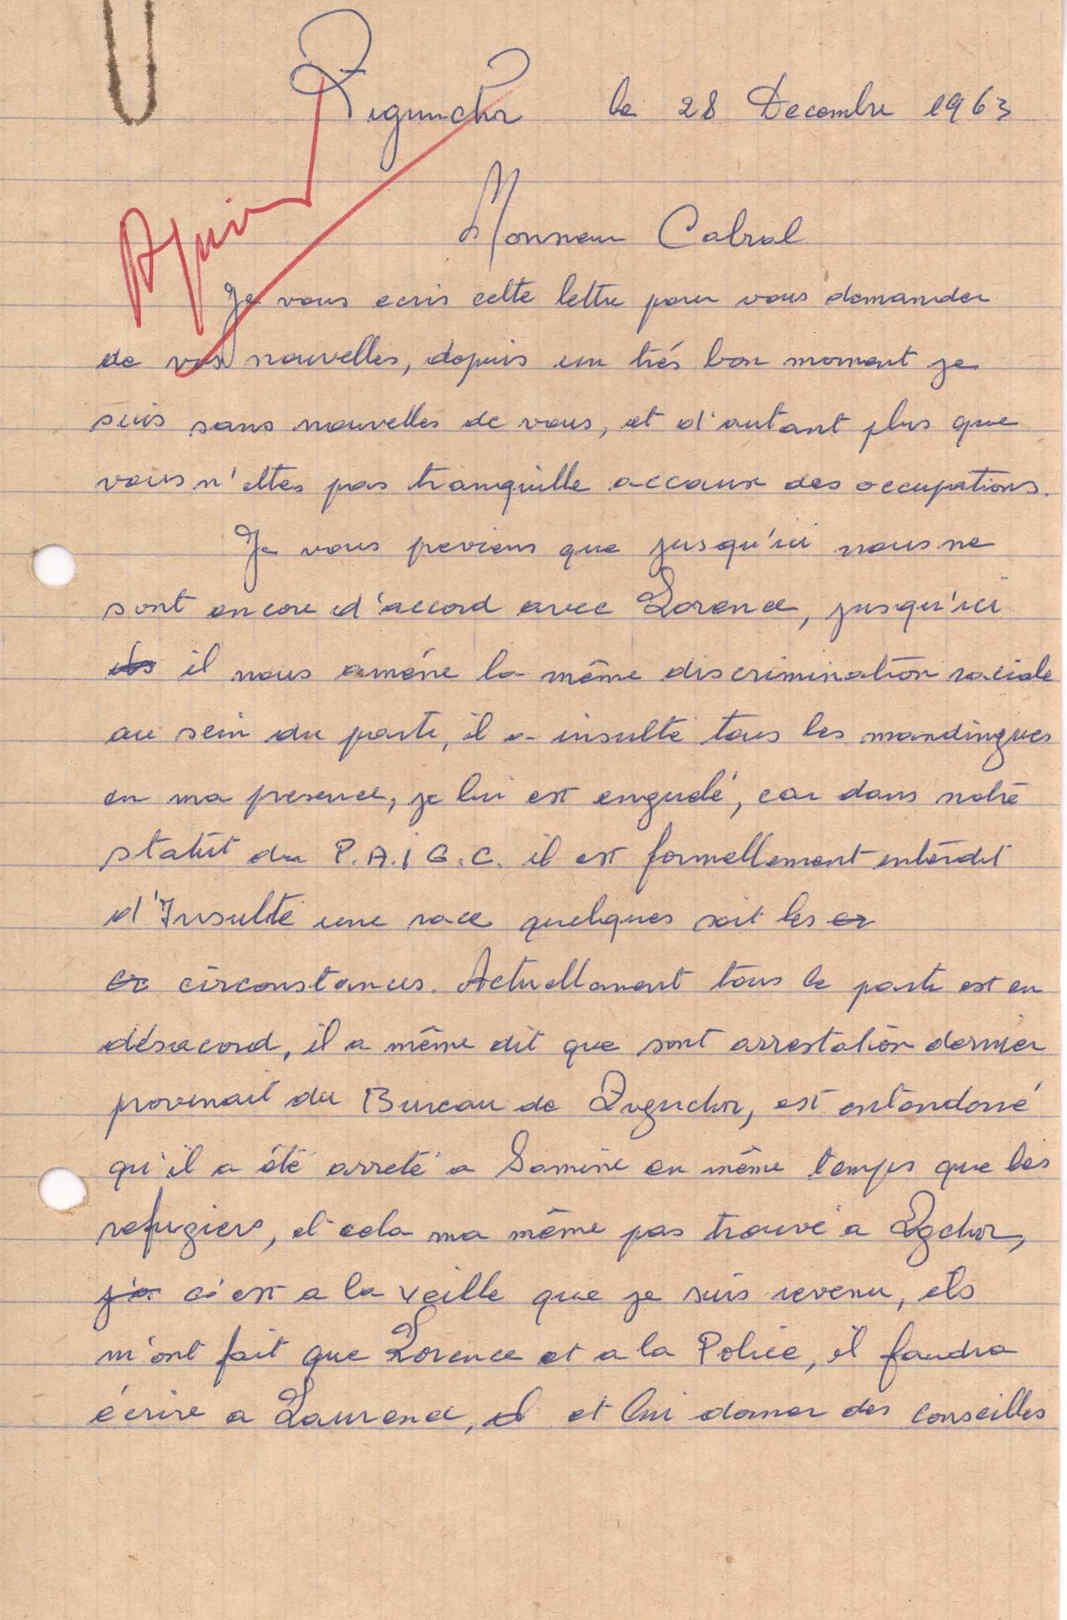 Ziguinchor le 28 Decembre 1963
Monsieur Cabral
Je vous ecris cette lettre pour vous demander
de vos nouvelles, depuis un trés bon moment je
suis sans nouvelles de vous, et d'autant plus que
vous n'ettes pas tranquille accause des occupations.
Je vous previens que jusqu'ici nous ne
sont encore d'accord avec Lorence, jusqu'ici
il nous améne la même discrimination raciale
au sein du parti, il a insulté tous les mandingues
en ma presence, je lui est engulé, car dans notre
statût du P.A.I G.C. il est formellement interdit
d'Insulté une race quelques soit les
circonstances. Actuellement tous le parti est en
désacord, il a même dit que sont arrestation dernier
provenait du Bureau de Ziguchor, est entendoné
qu'il a été arreté a Samine en même temps que les
refugiers, et cela ma même pas trouvé a Zgchor,
c'est a la veille que je suis revenu, ils
m'ont fait que Lorence et a la Police, il faudra
écrire a Laurence, et lui donner des conseilles